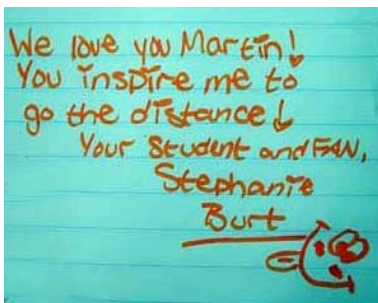 We love you Martin!
You inspire me to
go the distance!
Your Student and FAN,
Stephanie
Burt